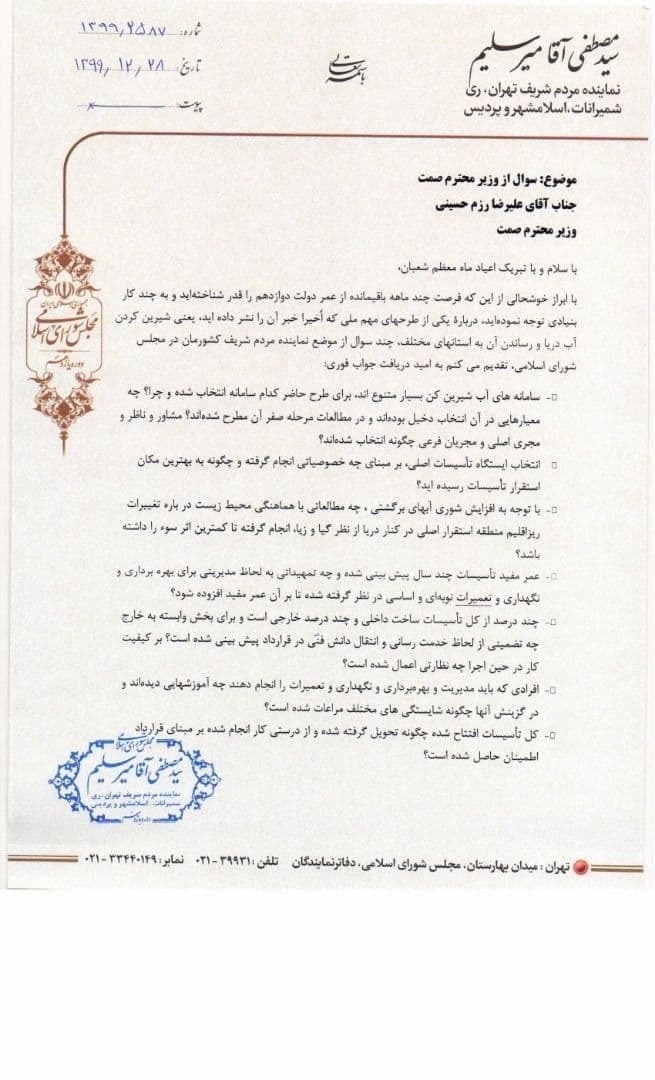 شماره: ۱۳۹۹٫۲۵۸۷
تاریخ: ۱۳۹۹٫۱۲٫۲۸
پیوست:
باسمه تعالی
سید مصطفی آقا میرسلیم
نماینده مردم شریف تهران، ری
شمیرانات، اسلامشهر و پردیس
موضوع: سوال از وزیر محترم صمت
جناب آقای علیرضا رزم حسینی
وزیر محترم صمت
جمهوری اسلامی ایران
مجلس شورای اسلامی
دوره یازدهم
با سلام و با تبریک اعیاد ماه معظم شعبان،
با ابراز خوشحالی از این که فرصت چند ماهه باقیمانده از عمر دولت دوازدهم را قدر شناخته‌اید و به چند کار
بنیادی توجه نموده‌اید، دربارۀ یکی از طرحهای مهم ملی که أخیرا خبر آن را نشر داده اید، یعنی شیرین کردن
آب دریا و رساندن آن به استانهای مختلف، چند سوال از موضع نماینده مردم شریف کشورمان در مجلس
شورای اسلامی، تقدیم می کنم به امید دریافت جواب فوری:
-□ سامانه های آب شیرین کن بسیار متنوع اند، برای طرح حاضر کدام سامانه انتخاب شده و چرا؟ چه
معیارهایی در آن انتخاب دخیل بوده‌اند و در مطالعات مرحله صفر آن مطرح شده‌اند؟ مشاور و ناظر و
مجری اصلی و مجریان فرعی چگونه انتخاب شده‌اند؟
□ انتخاب ایستگاه تأسیسات اصلی، بر مبنای چه خصوصیاتی انجام گرفته و چگونه به بهترین مکان
استقرار تأسیسات رسیده اید؟
-□ با توجه به افزایش شوری آبهای برگشتی ، چه مطالعاتی با هماهنگی محیط زیست در باره تغییرات
ریزاقلیم منطقه استقرار اصلی در کنار دریا از نظر گیا و زیا، انجام گرفته تا کمترین اثر سوء را داشته
باشد؟
-□ عمر مفید تأسیسات چند سال پیش بینی شده و چه تمهیداتی به لحاظ مدیریتی برای بهره برداری و
نگهداری و تعمیرات نوبه‌ای و اساسی در نظر گرفته شده تا بر آن عمر مفید افزوده شود؟
-□ چند درصد از کل تأسیسات ساخت داخلی و چند درصد خارجی است و برای بخش وابسته به خارج
چه تضمینی از لحاظ خدمت رسانی و انتقال دانش فنّی در قرارداد پیش بینی شده است؟ بر کیفیت
کار در حین اجرا چه نظارتی اعمال شده است؟
-□ افرادی که باید مدیریت و بهره‌برداری و نگهداری و تعمیرات را انجام دهند چه آموزشهایی دیده‌اند و
در گزینش آنها چگونه شایستگی های مختلف مراعات شده است؟
-□ کل تأسیسات افتتاح شده چگونه تحویل گرفته شده و از درستی کار انجام شده بر مبنای قرارداد
اطمینان حاصل شده است؟
مجلس شورای اسلامی
سید مصطفی آقا میرسلیم
نماینده مردم شریف تهران، ری
شمیرانات، اسلامشهر و پردیس
تهران : میدان بهارستان، مجلس شورای اسلامی، دفاتر نمایندگان تلفن : ۳۹۹۳۱-۰۲۱ نمابر: ۳۳۴۴۰۱۴۹-۰۲۱